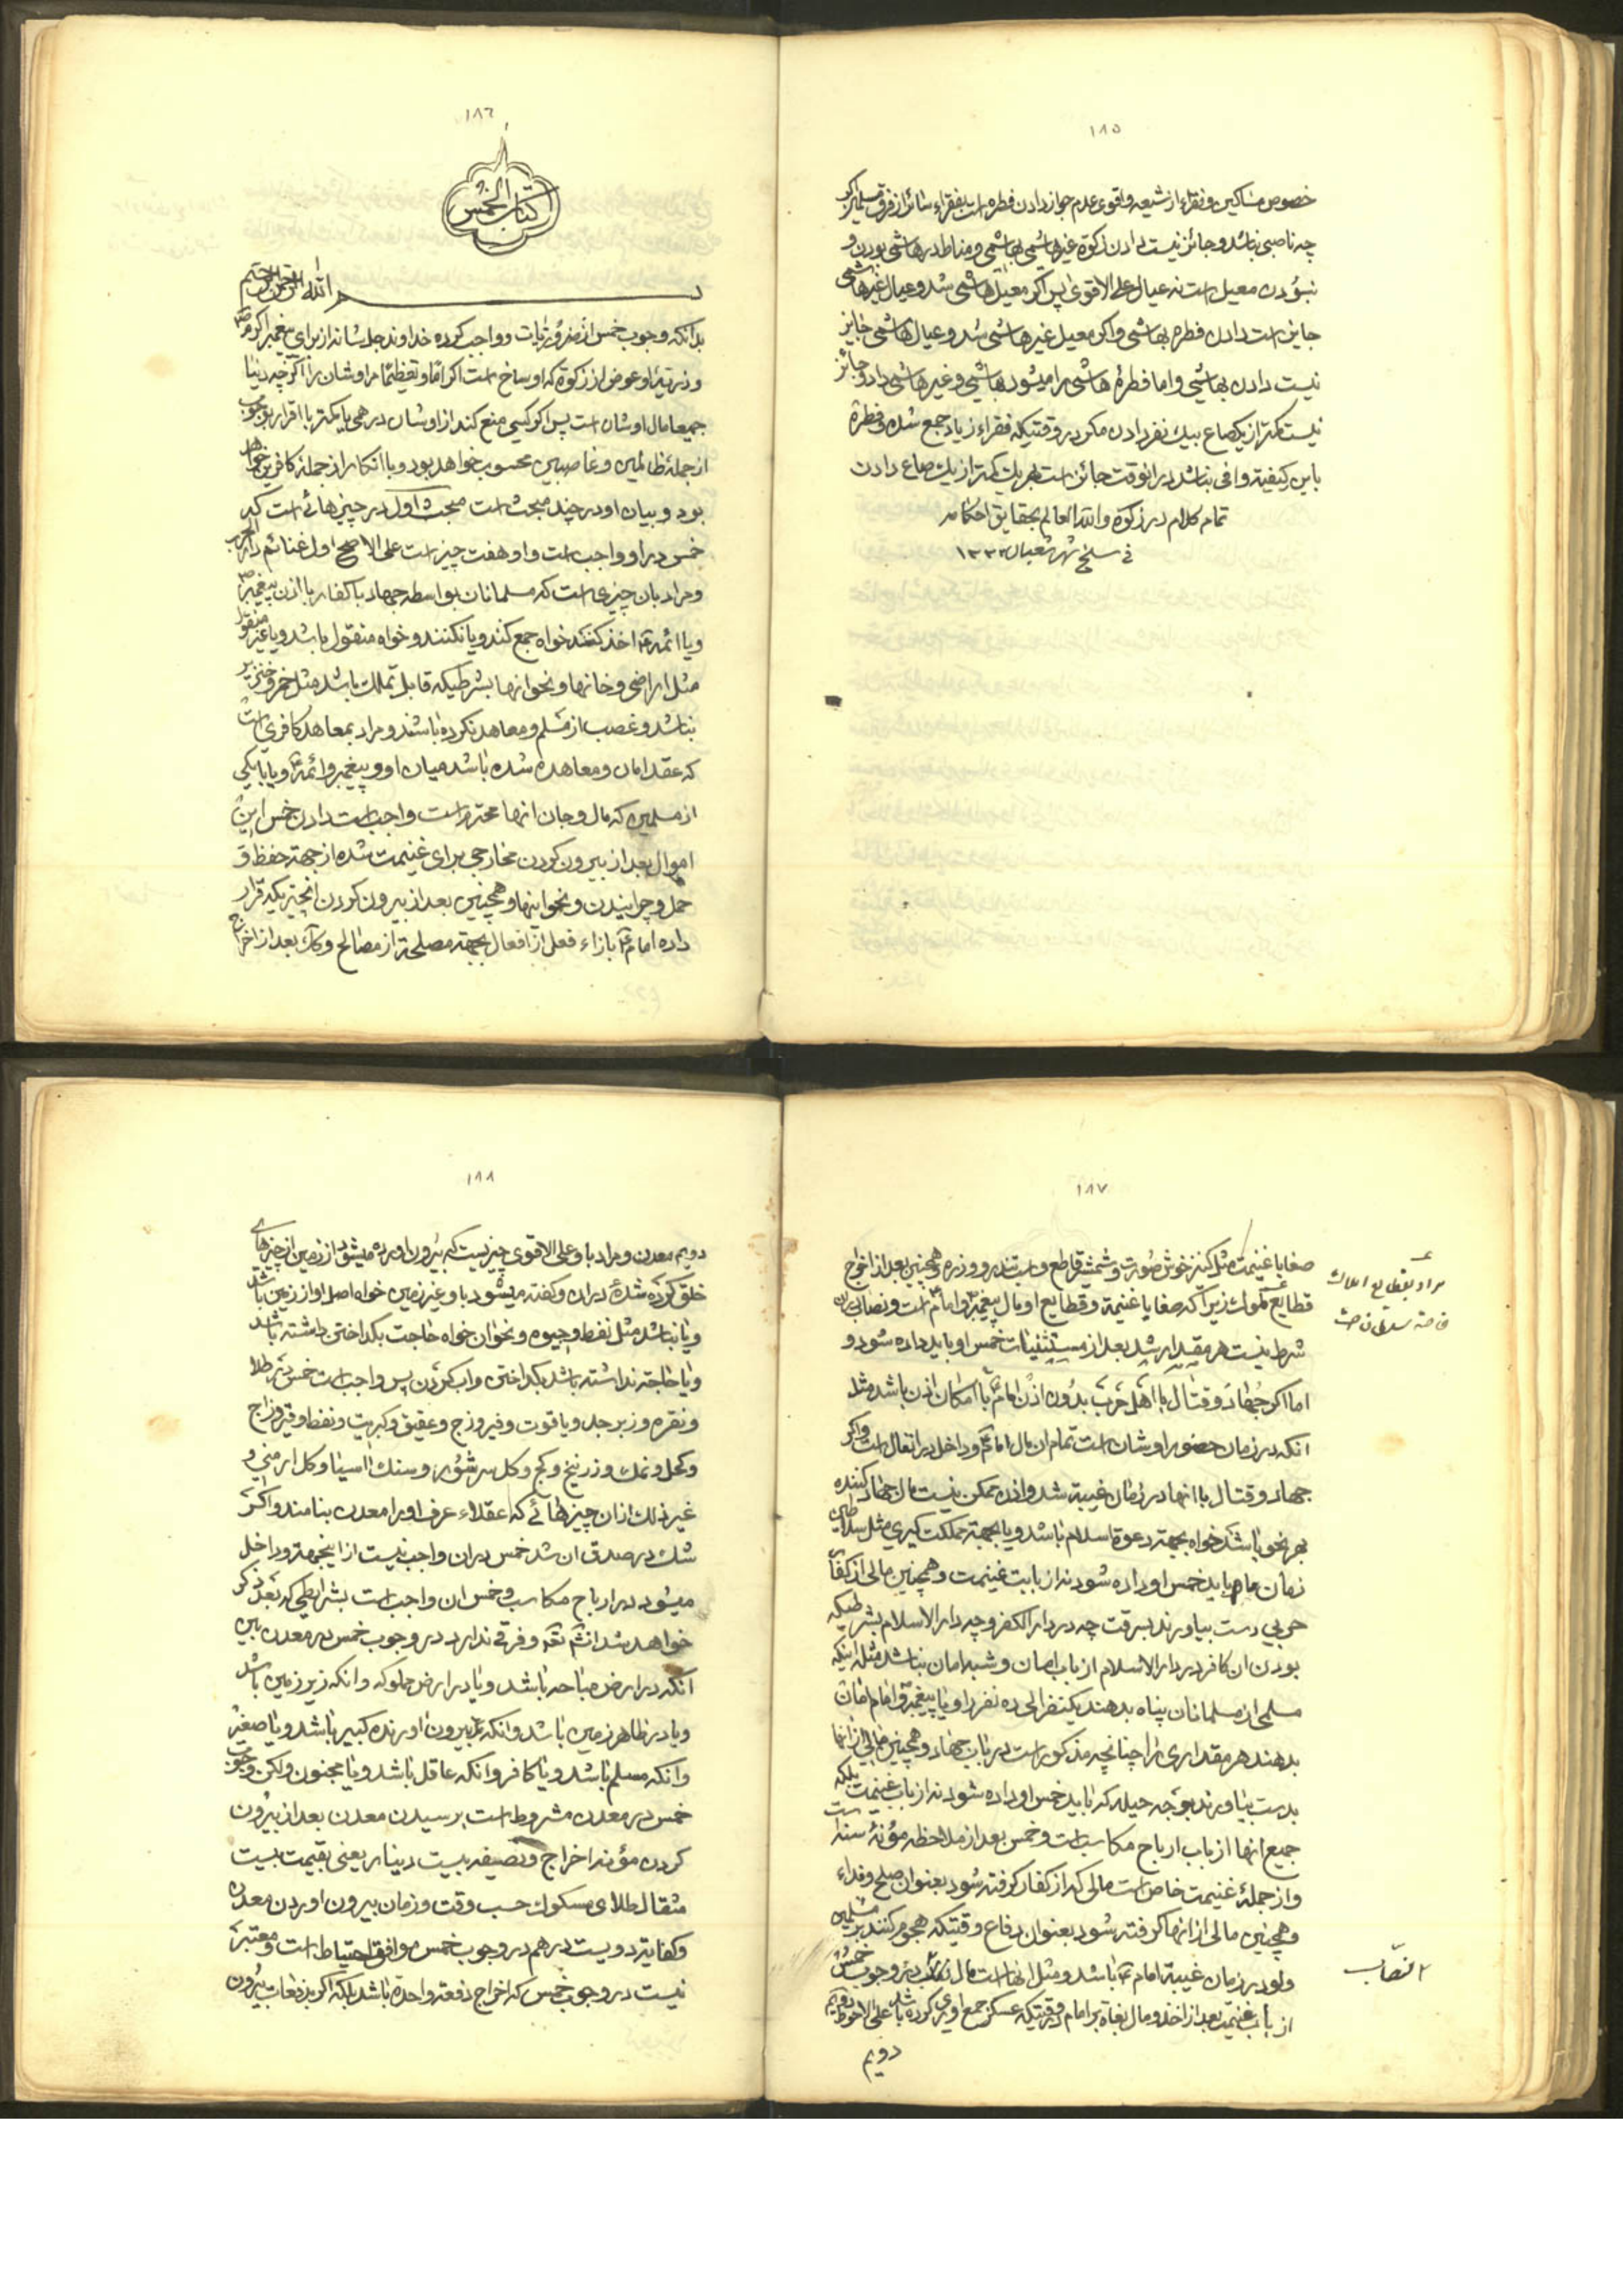 ۱۸۵
خصوص مساکین و فقراء از شیعه و اقوی عدم جواز دادن فطره است بفقراء سائر از فرق مسلمین اکر
چه ناصبی نباشد و جائز نیست دادن زکوة غیر هاشمی بهاشمی و مناط در هاشمی بودن و
نبودن معیل است نه عیال علی الاقوی پس اکر معیل هاشمی شد و عیال غیر هاشمی
جایز است دادن فطره بهاشمی و اکر معیل غیر هاشمی شد و عیال هاشمی جایز
نیست دادن بهاشمی و اما فطرۀ هاشمی را میشود بهاشمی و غیر هاشمی داد و جائز
نیست کمتر از یکصاع بیک نفر دادن مکر در وقتیکه فقراء زیاد جمع شده و فطرۀ
باین کیفیة وافی نباشد در انوقت جائز است بهر یک کمتر از یک صاع دادن
تمام کلام در زکوة والله العالم بحقایق احکامه
فی سلخ شهر شعبان ۱۳۳۲
۱۸۶
کتاب الخمس
بسم الله الرحمن الرحیم
بدانکه وجوب خمس از ضروریات و واجب کرده خداوند جل شانه از برای پیغمبر اکرم ص
و ذریۀ او عوض از زکوة که اوساخ است اکراما و تعظیما مر اوشان را اکرچه دنیا
جمیعا مال اوشان است پس اکر کسی منع کند از اوشان درهمی یا کمتر با اقرار بوجوب
از جملۀ ظالمین و غاصبین محسوب خواهد بود و با انکار از جملۀ کافرین خواهد
بود و بیان او در چند مبحث است مبحث اول در چیزهائی است که
خمس در او واجب است و او هفت چیز است علی الاصح اول غنائم دار الحرب
و مراد بان چیزی است که مسلمانان بواسطه جهاد با کفار با اذن پیغمبر ص
و یا ائمه ع اخذ کنند خواه جمع کنند و یا نکنند و خواه منقول باشد و یا غیر منقول
مثل اراضی و خانها و نحو انها بشرطیکه قابل تملک باشد مثل خمر و خنزیر
نباشد و غصب از مسلم و معاهد نکرده باشند و مراد بمعاهد کافری است
که عقد امان و معاهده شده باشد میان او و پیغمبر و ائمه ع و یا با یکی
از مسلمین که مال و جان انها محترم است و واجب است دادن خمس این
اموال بعد از بیرون کردن مخارجی برای غنیمت شده از جهة حفظ او
حمل و چرانیدن و نحو اینها و همچنین بعد از بیرون کردن انچیزیکه قرار
داده امام ع بازاء فعلی از افعال بجهة مصلحة از مصالح و کذلک بعد از اخراج
۱۸۷
صفایا غنیمت مثل کنیز خوش صورت و شمشیر قاطع و اسب تندرو و زره و همچنین بعد از اخراج
قطایع ملوک زیرا که صفایا غنیمة و قطایع او مال پیغمبر و امام ع است و نصاب در ان
شرط نیست هر مقدار شد بعد از مستثنیات خمس او باید داده شود و
اما اکر جهاد و قتال با اهل حرب بدون اذن امام ع با امکان اذن باشد مثل
انکه در زمان حضور اوشان است تمام ان مال امام ع و داخل در انفال است و اکر
جهاد و قتال با انها در زمان غیبة شد و اذن ممکن نیست مال جهاد کننده
بهر نحو باشد خواه بجهة دعوة اسلام باشد و یا بجهة مملکت کیری مثل سلاطین
زمان ما باید خمس او داده شود نه از بابت غنیمت و همچنین مالی از کفار
حربی دست بیاورند بسرقت چه در دار الکفر و چه دار الاسلام بشرطیکه
بودن ان کافر در دار الاسلام از باب امان و شبه امان نباشد مثل اینکه
مسلمی از مسلمانان پناه بدهند یکنفر الی ده نفر را و یا پیغمبر و امام امان
بدهند هر مقداری را چنانچه مذکور است در باب جهاد و همچنین مالی از انها
بدست بیاورند بوجه حیله که باید خمس او داده شود نه از باب غنیمت بلکه
جمیع انها از باب ارباح مکاسب است و خمس بعد از ملاحظه مؤنۀ سنه است
و از جملۀ غنیمت خاص است مالی که از کفار کرفته شود بعنوان صلح و فداء
و همچنین مالی از انها کرفته شود بعنوان دفاع وقتیکه هجوم کنند بر مسلمین
ولو در زمان غیبة امام ع باشد و مثل انها است مال در وجوب خمس
از باب غنیمت بعد از اخذ و مال بغاة بر امام وقتیکه عسکر جمع اوری کرده باشد علی الاحوط
دویم
مراد بقطایع املاک
خاصه سلاطین است
النصاب
۱۸۸
دویم معدن و مراد باو علی الاقوی چیزیست که بیرون اورده میشود از زمین از چیزهای
خلق کرده شده در ان و کفته میشود باو غیر زمین خواه اصل او از زمین باشد
و یا نباشد مثل نفط و جیوه و نحو ان خواه حاجت بکداختن داشته باشد
و یا حاجة نداشته باشد بکداختن و اب کردن پس واجب است خمس در طلا
و نقره و زبرجد و یاقوت و فیروزج و عقیق و کبریت و نفط و قیر و زاج
و کحل و نمک و زرنیخ و کج و کل سرشور و سنک اسیا و کل ارمنی و
غیر ذلک از ان چیزهائی که عقلاء عرف او را معدن بنامند و اکر
شک در صدق ان شد خمس در ان واجب نیست از اینجهة و داخل
میشود در ارباح مکاسب و خمس ان واجب است بشرایطی که بعد ذکر
خواهد شد انشاء الله و فرقی ندارد در وجوب خمس در معدن بین
انکه در ارض مباحه باشد و یا در ارض مملوکه و انکه زیر زمین باشد
و یا در ظاهر زمین باشد و انکه بیرون اورنده کبیر باشد و یا صغیر
و انکه مسلم باشد و یا کافر و انکه عاقل باشد و یا مجنون ولکن وجوب
خمس در معدن مشروط است برسیدن معدن بعد از بیرون
کردن مؤنه اخراج و تصفیه بیست دینار یعنی بقیمت بیست
مثقال طلای مسکوک حسب وقت و زمان بیرون اوردن معدن
و کفایة دویست درهم در وجوب خمس موافق احتیاط است و معتبر
نیست در وجوب خمس که اخراج دفعة واحدة باشد بلکه اکر بدفعات بیرون